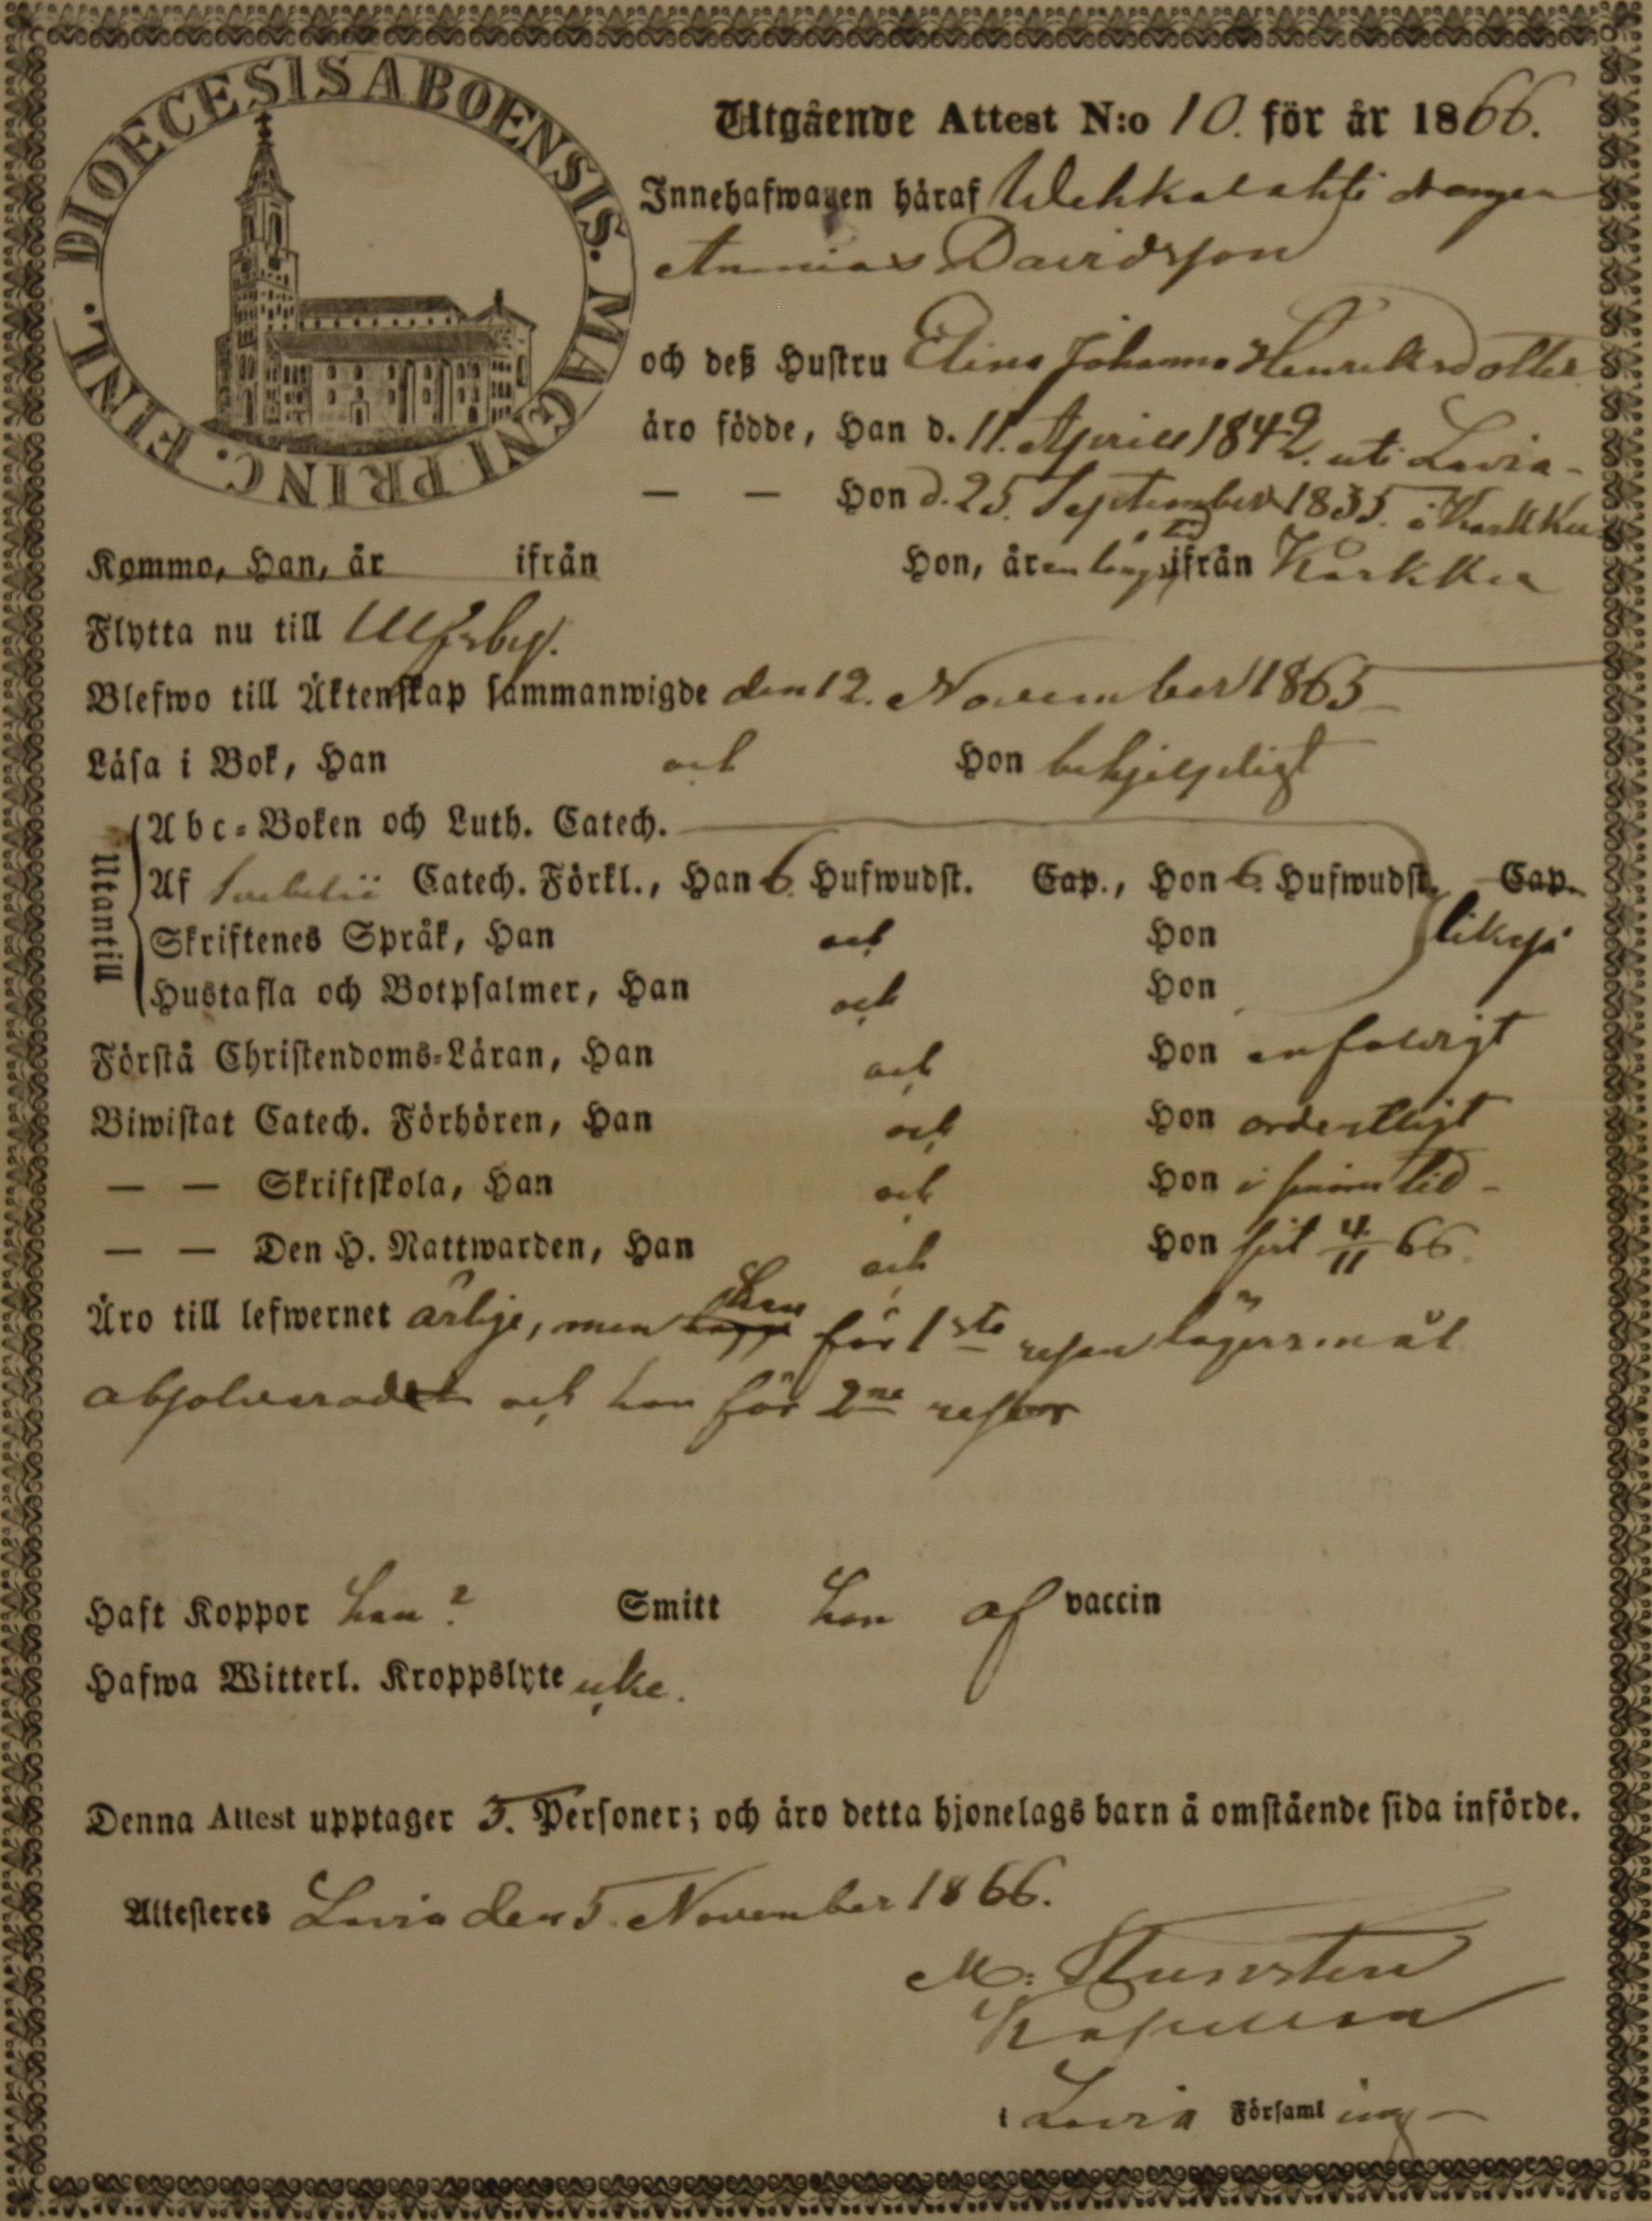 DIOECESIS ABOENSIS. MAGNI PRINC. FINL.
Utgående Attest N:o 10. för år 1866.
Innehafwaren häraf drengen
Davidsson
och deß Hustru Elina Johanna Henriksdotter
äro födde, Han d. 11. Aprill 1842. uti Lavia
— — Hon d. 25. September 1835. i Karkku
Kommo, Han, år ifrån Hon, år en längre tid ifrån Karkku
Flytta nu till Ulfsby.
Blefwo till Äktenskap sammanwigde den 12. November 1865
Läsa i Bok, Han och Hon behjelpligt
Utantill
Abc-Boken och Luth. Catech.
Af Svebelii Catech. Förkl., Han 6. Hufwudst. Cap., Hon 6. Hufwudst. Cap.
Skriftenes Språk, Han och Hon likaså
Hustafla och Botpsalmer, Han och Hon
Förstå Christendoms-Läran, Han och Hon enfaldigt
Biwistat Catech. Förhören, Han och Hon ordentligt
— — Skriftskola, Han och Hon i sinom tid
— — Den H. Nattwarden, Han och Hon sist 4/11 66.
Äro till lefwernet ärlige, men han för 1sta resan lägersmål
absolverad och hon för 2ne resor
Haft Koppor han? Smitt hon af vaccin
Hafwa Witterl. Kroppslyte icke.
Denna Attest upptager 3. Personer; och äro detta hjonelags barn å omstående sida införde.
Attesteres Lavia den 5. November 1866.
M:
Kapellan
i Lavia Församling